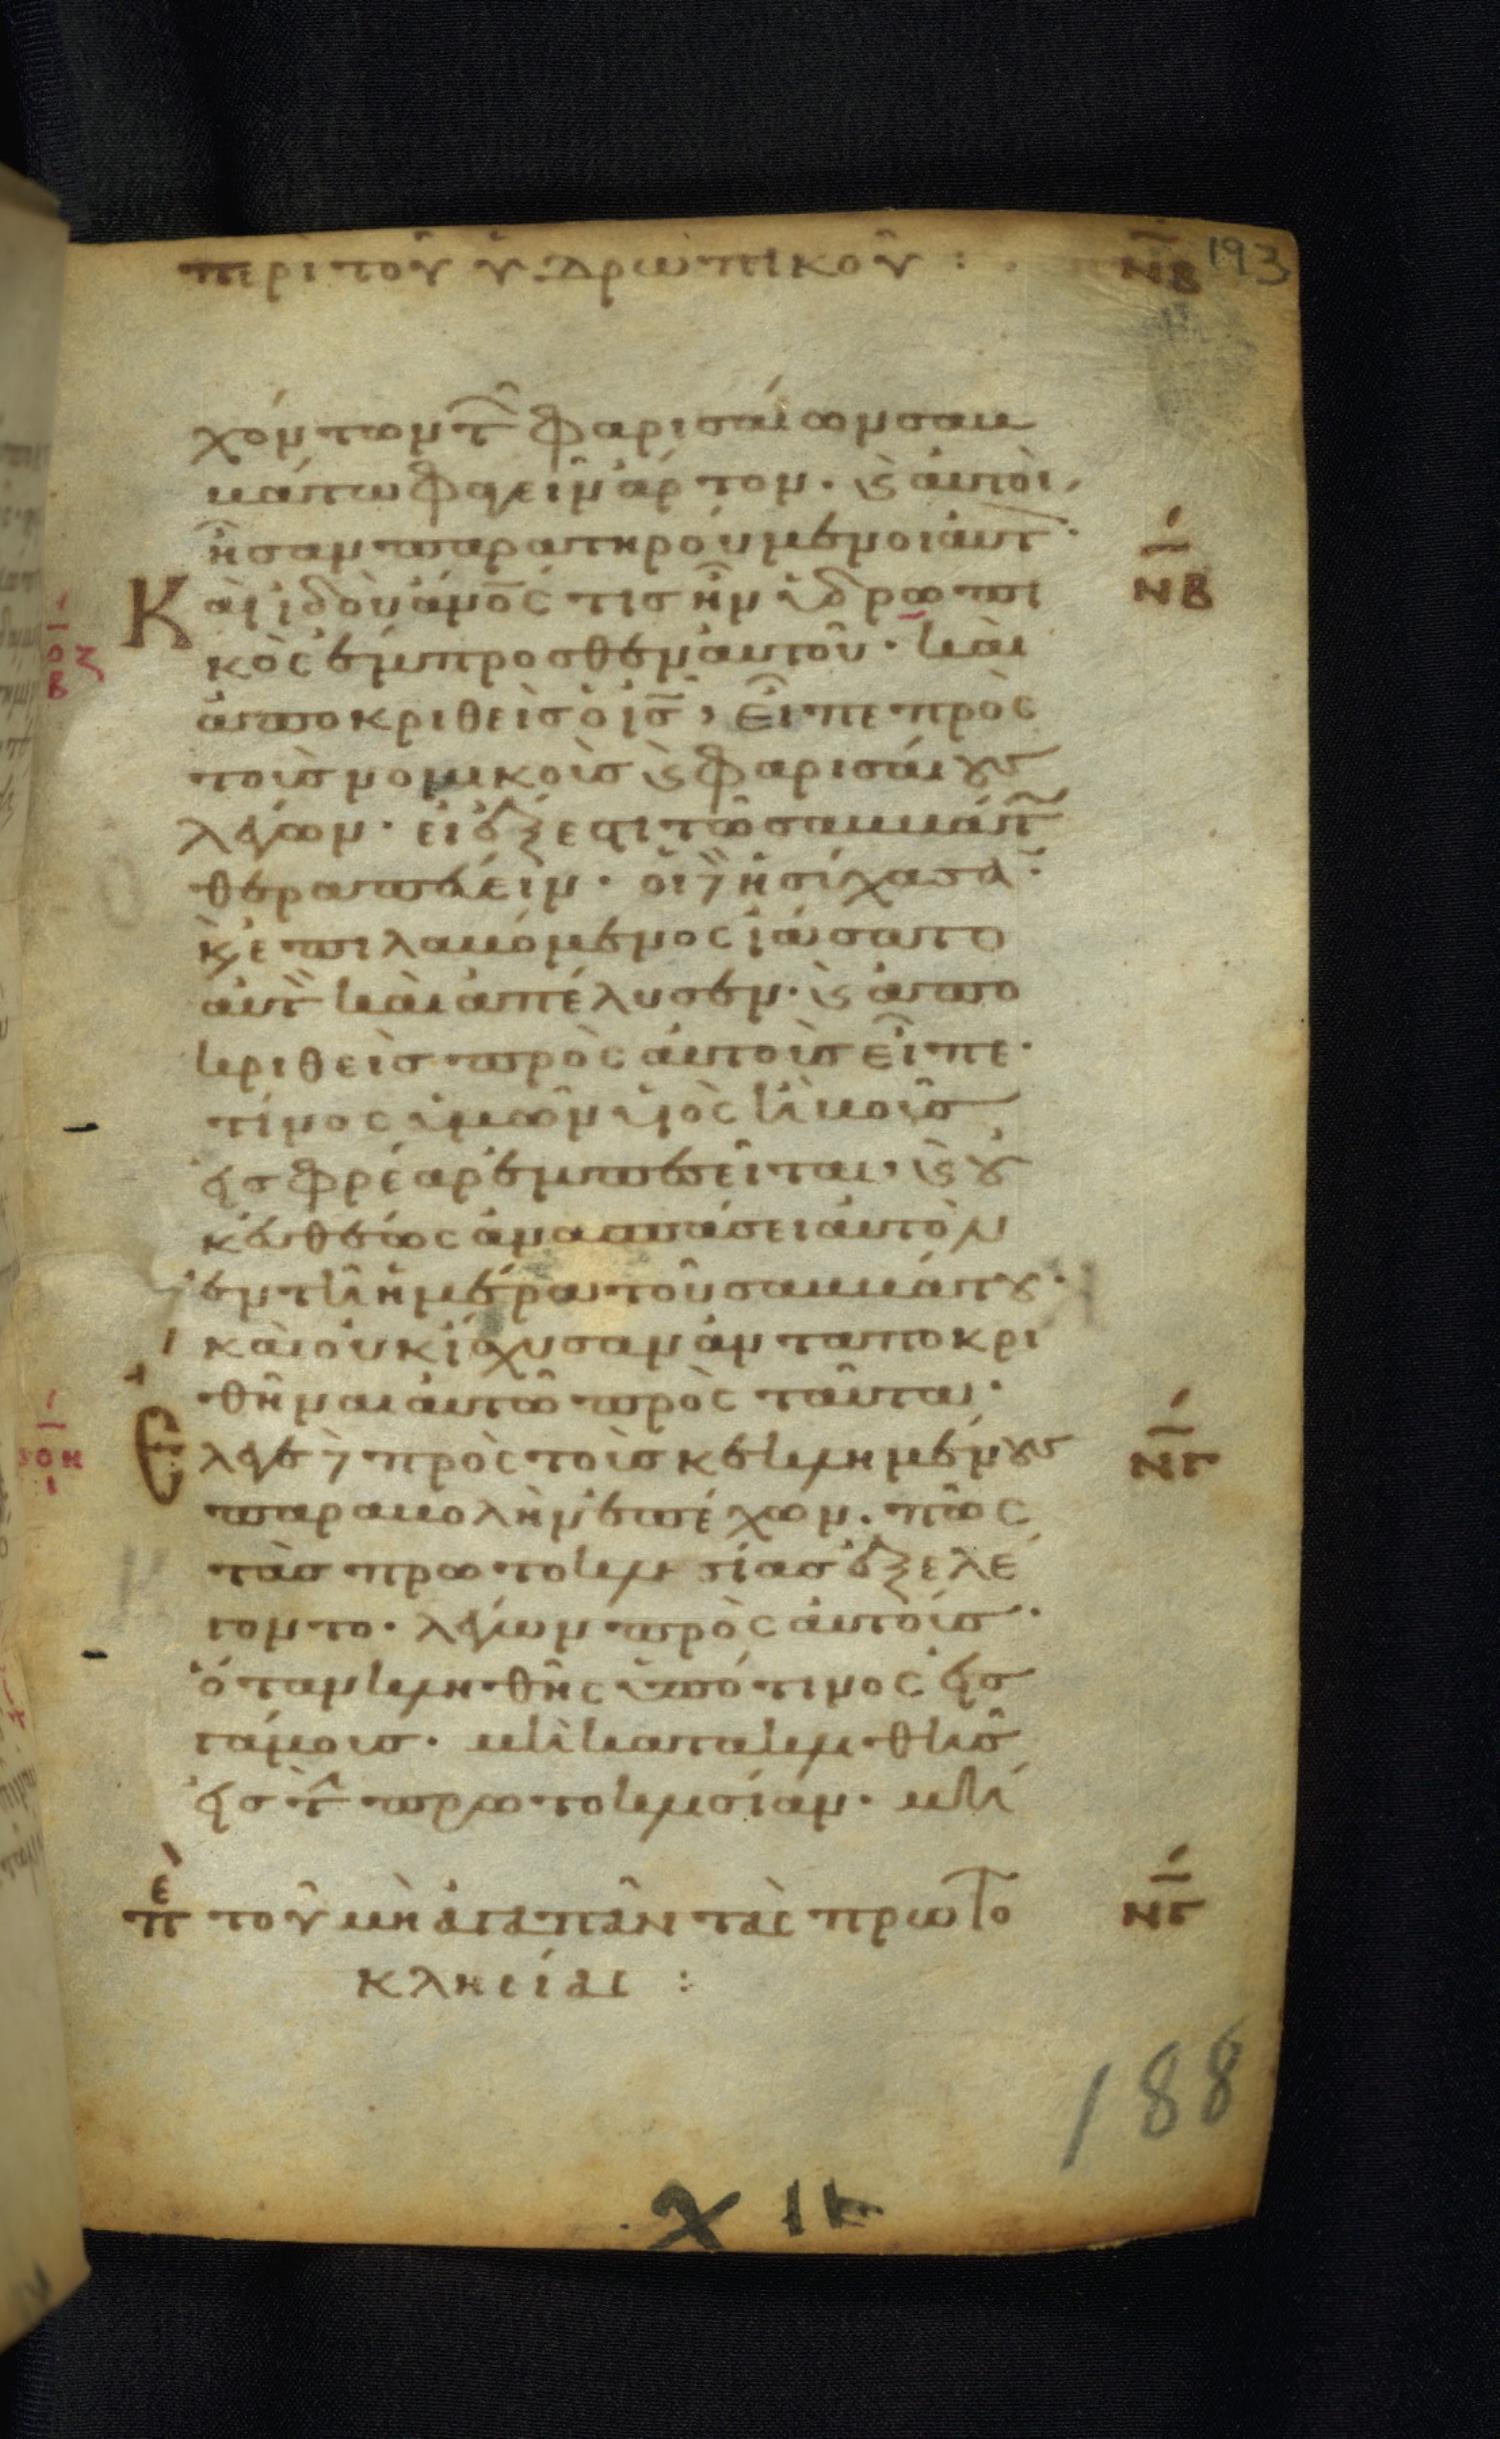 περὶ τοῦ ὑδρωπικοῦ : ΝΒ 193
χόντων τῶν φαρισαίων σαβ
βάτω φαγεῖν ἄρτον. καὶ αὐτοὶ
ἦσαν παρατηρούμενοι αὐτ
ΝΒ
Καὶ ἰδοὺ ἄνος τισ ἦν ὑδρωπι
κὸς ἔμπροσθεν αὐτοῦ. καὶ
ἀποκριθεὶς ὁ ἰς, εἶπε πρὸς
τοὺς νομικοὺς καὶ φαρισαίους
λέγων. εἰ ἔξεστι τῶ σαββάτ
θεραπεύειν. οἱ δὲ ἡσύχασαν.
κ, ἐπιλαβόμενος ἰάσατο
αὐτὸν καὶ ἀπέλυσεν. καὶ ἀπο
κριθεὶς πρὸς αὐτοὺς εἶπε.
τίνος ὑμῶν υἱὸς ἢ βοῦς
εἰς φρέαρ ἐμπεσεῖται, καὶ οὐ
κ εὐθέως ἀνασπάσει αὐτὸν
ἐν τῆ ἡμέρα τοῦ σαββάτου.
καὶ οὐκ ἴσχυσαν ἀνταποκρι
θῆναι αὐτῶ πρὸς ταῦτα.
Ἔλεγε δὲ πρὸς τοὺς κεκλημένους
ΝΓ
παραβολὴν ἐπέχων. πῶς
τὰς πρωτοκλησίας ἐξελέ
γοντο. λέγων πρὸς αὐτούς.
ὅταν κληθῆς ὑπό τινος εἰς
γάμους. μὴ κατακληθῆς
εἰς τὴν πρωτοκλησίαν. μή
πε τοῦ μὴ ἀγαπᾶν τὰς πρωτο ΝΓ
κλησίας :
188